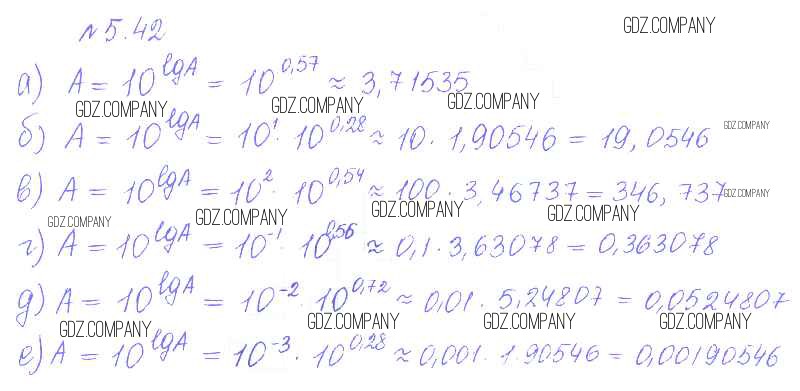 №5.42
GDZ.COMPANY
а) A = 10^lgA = 10^0,57 ≈ 3,71535
GDZ.COMPANY GDZ.COMPANY GDZ.COMPANY
б) A = 10^lgA = 10^1 · 10^0,28 ≈ 10 · 1,90546 = 19,0546 GDZ.COMPANY
в) A = 10^lgA = 10^2 · 10^0,54 ≈ 100 · 3,46737 = 346,737 GDZ.COMPANY
GDZ.COMPANY GDZ.COMPANY GDZ.COMPANY GDZ.COMPANY
г) A = 10^lgA = 10^-1 · 10^0,56 ≈ 0,1 · 3,63078 = 0,363078
д) A = 10^lgA = 10^-2 · 10^0,72 ≈ 0,01 · 5,24807 = 0,0524807
GDZ.COMPANY GDZ.COMPANY GDZ.COMPANY GDZ.COMPANY
е) A = 10^lgA = 10^-3 · 10^0,28 ≈ 0,001 · 1.90546 = 0,00190546